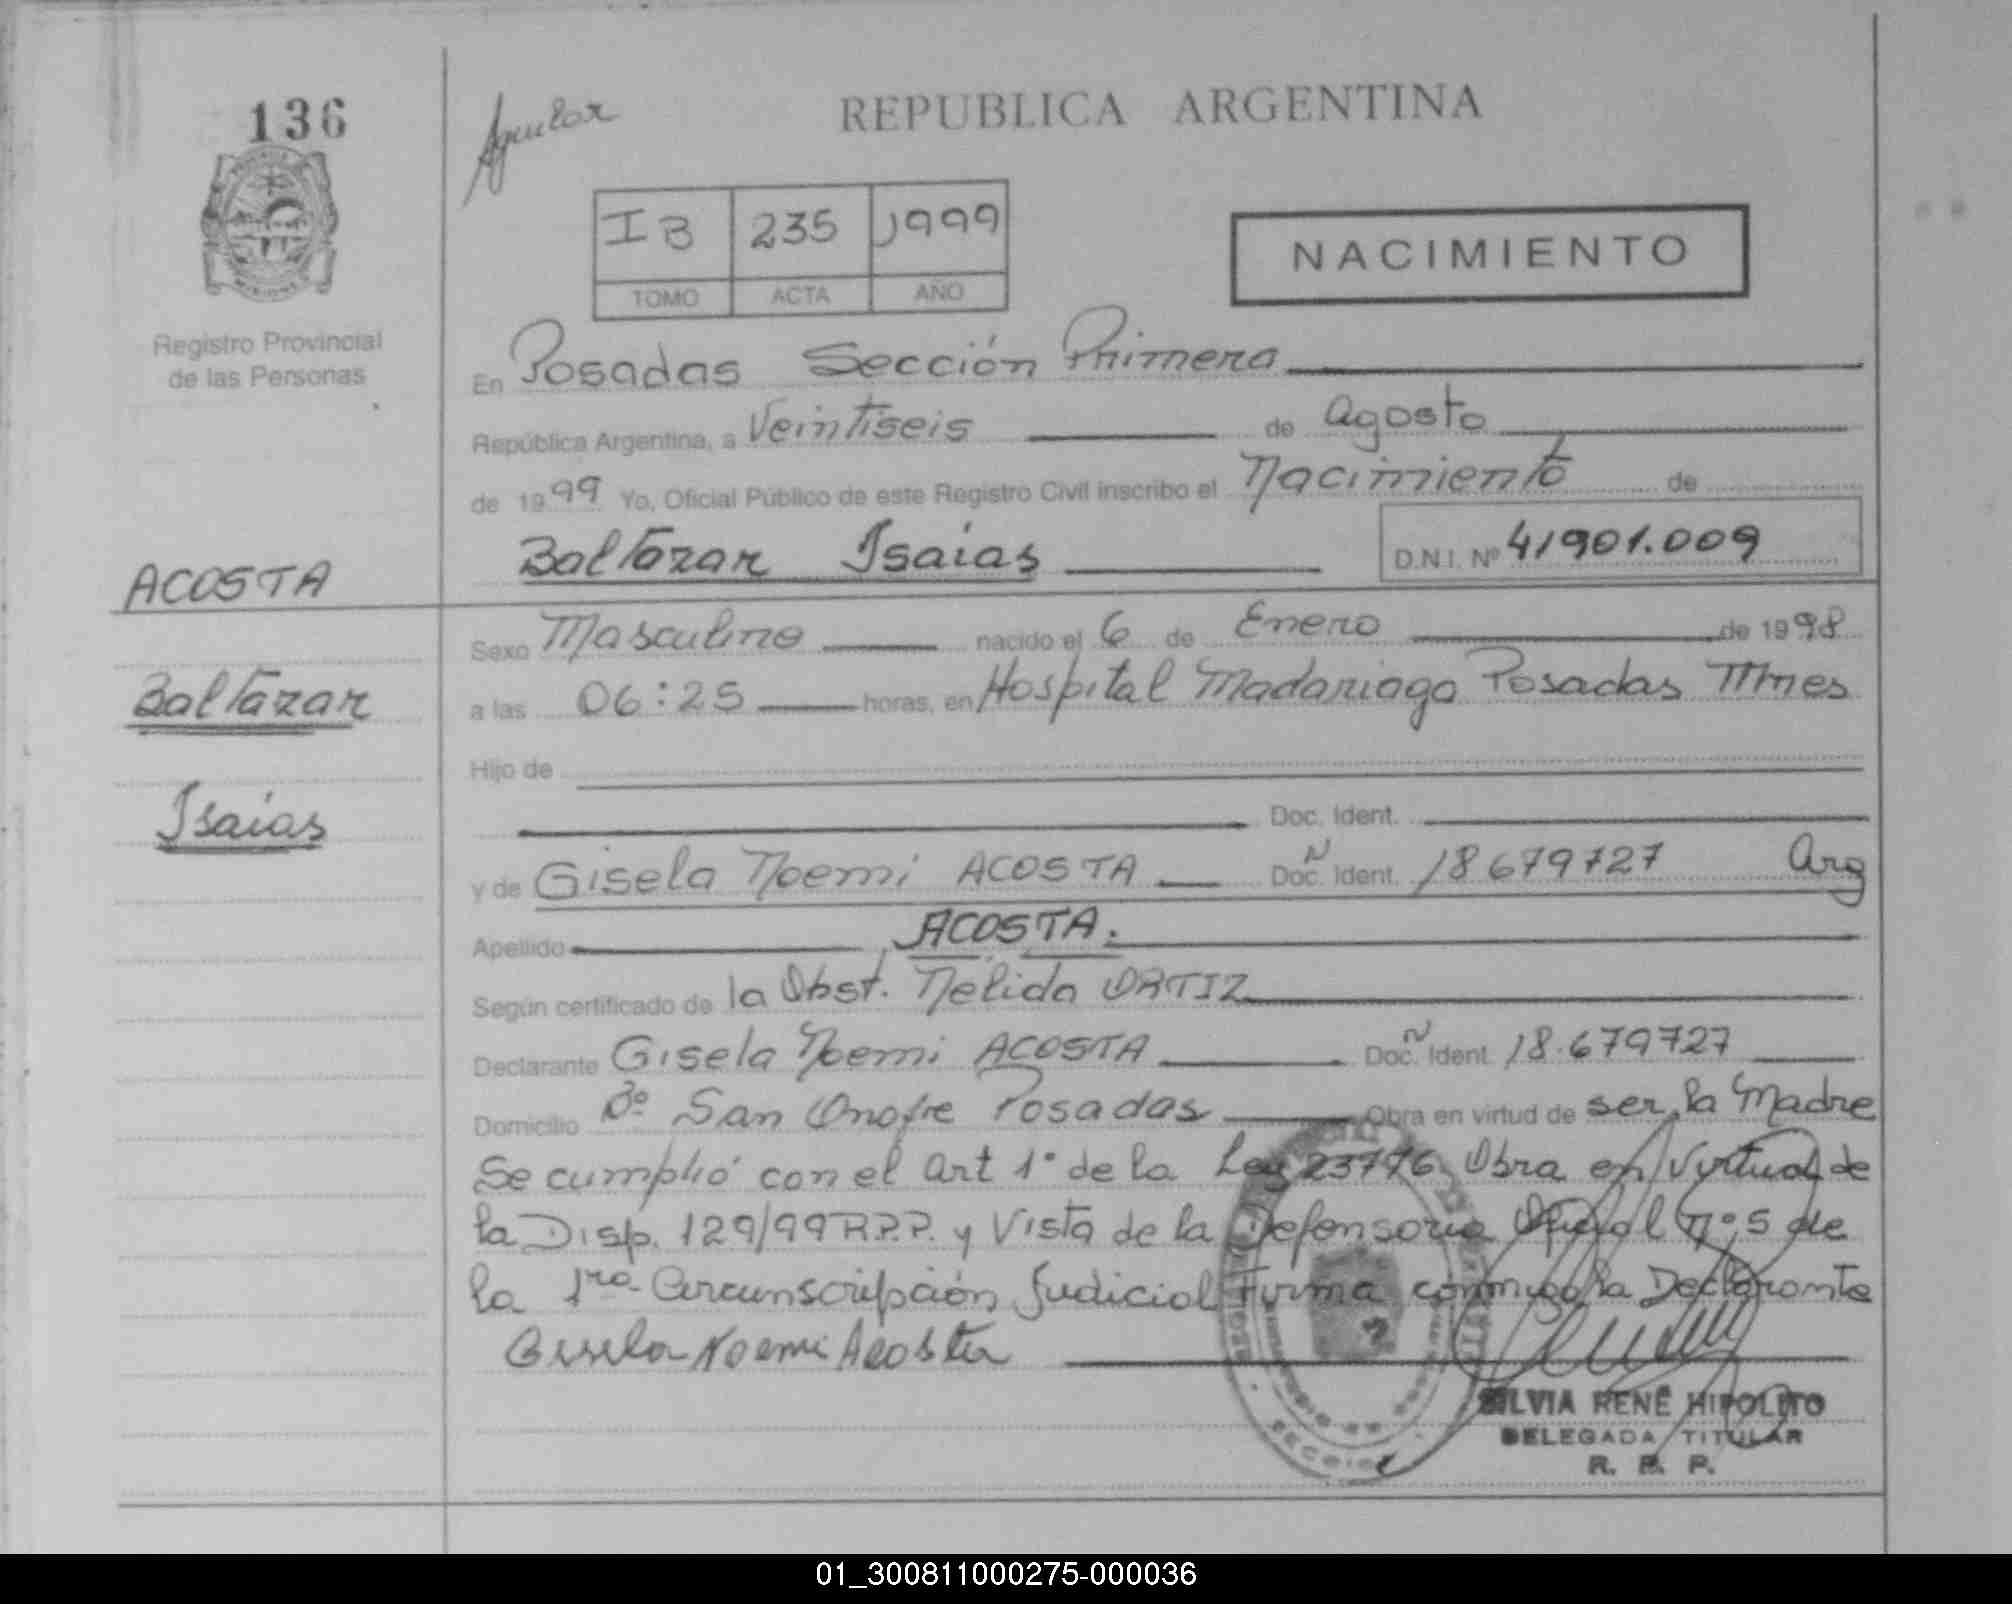 136
Aguilar
REPUBLICA ARGENTINA
IB 235 1999
TOMO ACTA AÑO
NACIMIENTO
Registro Provincial
de las Personas
En Posadas Sección Primera
República Argentina, a Veintiseis de Agosto
de 1999 Yo, Oficial Público de este Registro Civil inscribo el Nacimiento de
Baltazar Isaias D.N.I. Nº 41901.009
ACOSTA
Baltazar
Isaias
Sexo Masculino nacido el 6 de Enero de 1998
a las 06:25 horas, en Hospital Madariaga Posadas Mnes
Hijo de
Doc. Ident.
y de Gisela Noemi ACOSTA Doc. Ident. N 18679727 Arg
Apellido ACOSTA.
Según certificado de la Obst. Nelida ORTIZ
Declarante Gisela Noemi ACOSTA Doc. Ident. N 18.679727
Domicilio Bº San Onofre Posadas Obra en virtud de ser la Madre
Se cumplió con el Art 1º de la Ley 23776. Obra en Virtud de
la Disp. 129/99 R.P.P. y Vista de la Defensoria Oficial Nº 5 de
la 1ra Circunscripción Judicial Firma conmigo la Declarante
Gisela Noemi Acosta
SILVIA RENÉ HIPOLITO
DELEGADA TITULAR
R. P. P.
01_300811000275-000036